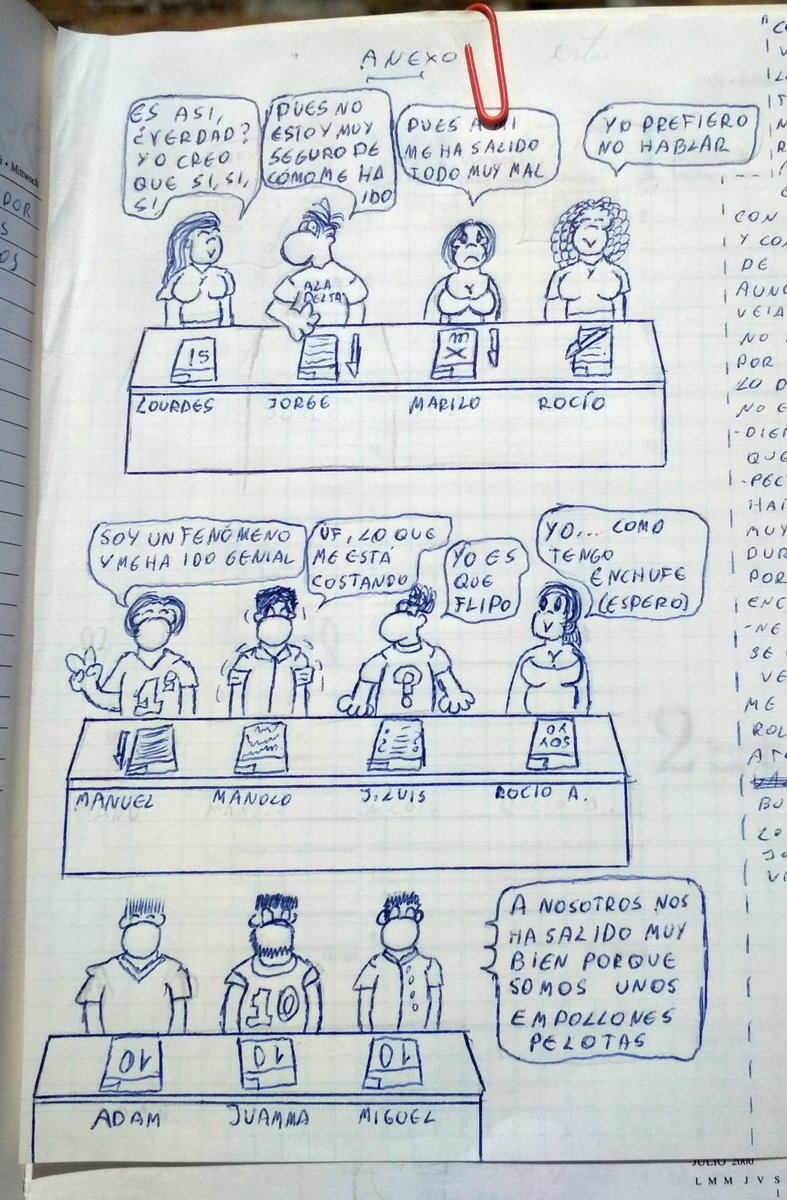 ANEXO
ES ASI,
¿VERDAD?
YO CREO
QUE SI, SI,
SI
PUES NO
ESTOY MUY
SEGURO DE
CÓMO ME HA
IDO
PUES A MI
ME HA SALIDO
TODO MUY MAL
YO PREFIERO
NO HABLAR
ALA
DELTA
15
LOURDES
JORGE
MARILO
ROCÍO
SOY UN FENÓMENO
Y ME HA IDO GENIAL
UF, LO QUE
ME ESTÁ
COSTANDO
YO ES
QUE
FLIPO
YO... COMO
TENGO
ENCHUFE
(ESPERO)
1º
?
MANUEL
MANOLO
J. LUIS
ROCIO A.
A NOSOTROS NOS
HA SALIDO MUY
BIEN PORQUE
SOMOS UNOS
EMPOLLONES
PELOTAS
10
10
10
10
ADAM
JUAMMA
MIGUEL
CON
Y CON
DE
NO
POR
QUE
MUY
POR
SE
ME
Mittwoch
JULIO 2000
L M M J V S
1